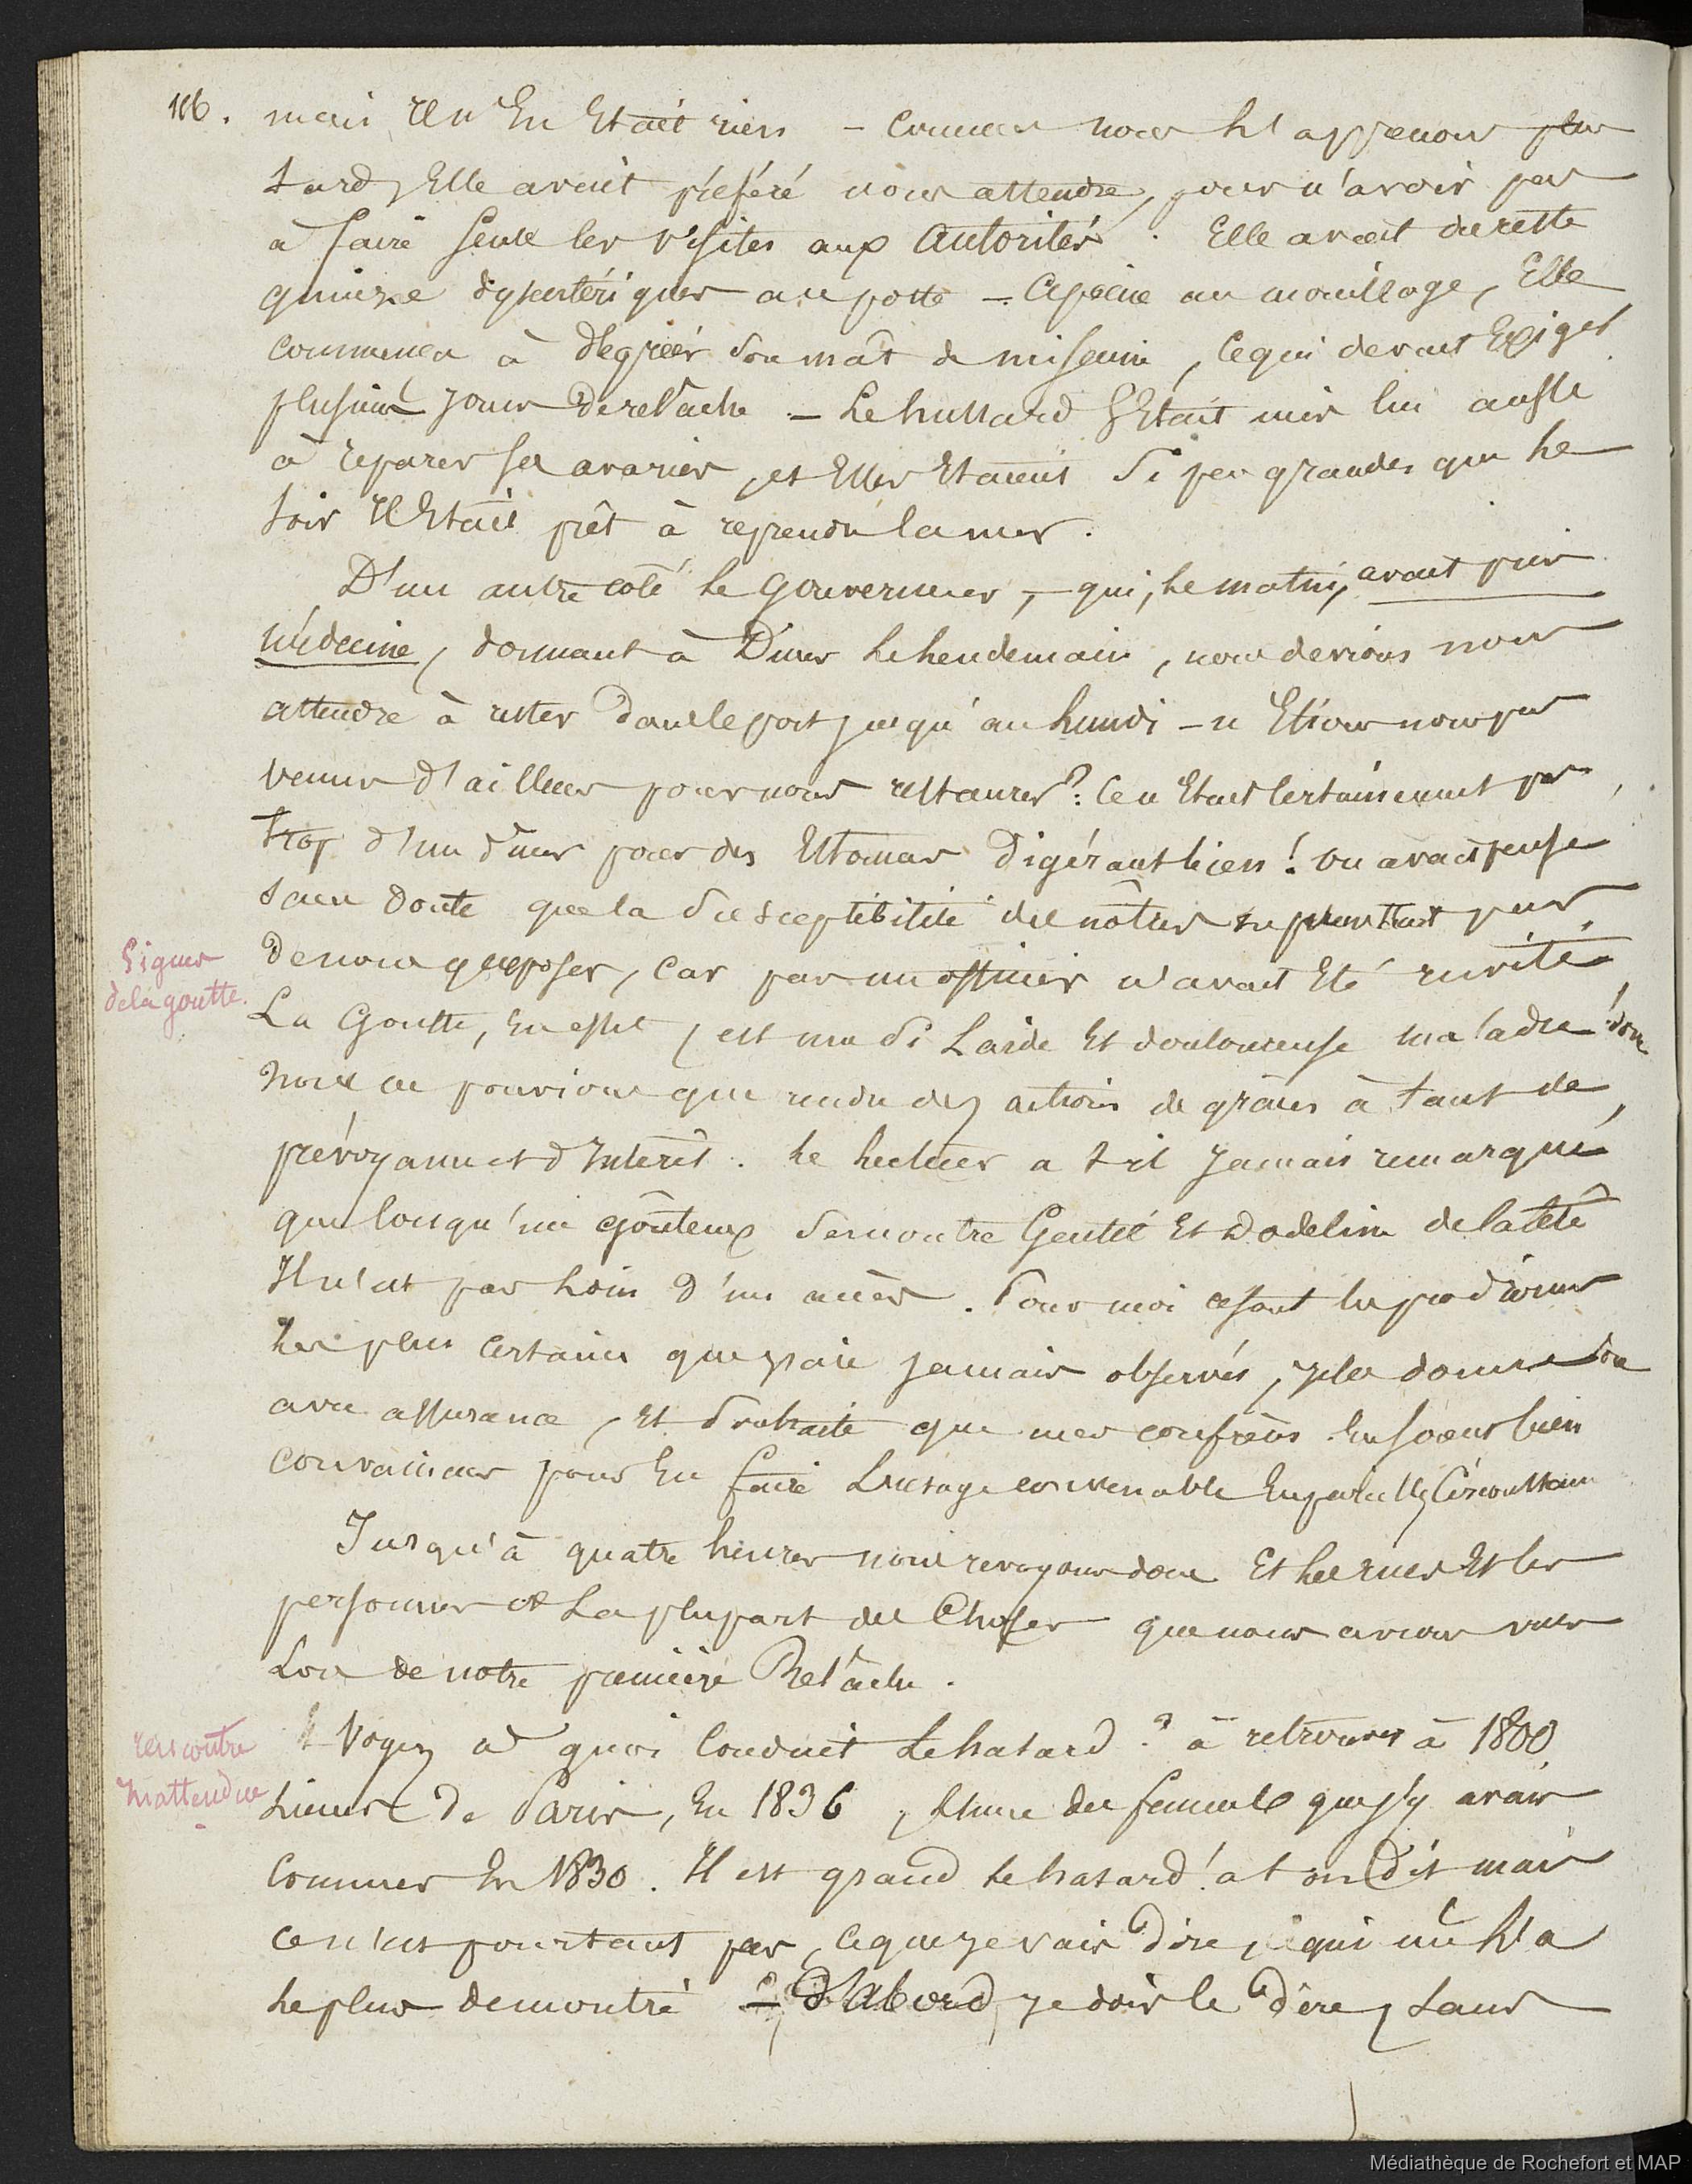 116. mais il n'en était rien - comme nous l'apprenons plus
tard, Elle avait préféré nous attendre, pour n'avoir pas
à faire seule les visites aux Autorités. Elle avait du reste
quinze dysentériques au poste - à peine au mouillage, Elle
commença à dégréér son mât de misaine, ce qui devait Exiger
plusieurs jours de relâche - Le hussard s'était mis lui aussi
à reparer ses avaries, et Elles Etaient si peu grandes que le
soir il Etait prêt à reprendre la mer.
D'un autre coté le Gouverneur, - qui, le matin, avait pris
médecine, donnant à Diner le lendemain, nous devions nous
attendre à rester dans le port jusqu'au lundi - n'Etions nous pas
venus d'ailleurs pour nous restaurer? Ce n'Etait certainement pas
trop d'un diner pour des Estomacs digérant bien! on avait pensé
sans doute que la susceptibilité des nôtres ne permettait pas
de nous y exposer, car pas un officier n'avait Eté invité
Signes
de la goutte.
La Goutte, en effet, est une si Laide Et douloureuse maladie! donc
nous ne pouvions que rendre des actions de grâces à tant de
prévoyance et d'Intérêt. Le lecteur a t-il jamais remarqué
que lorsqu'un goûteux se montre Gentil Et Dodeline de la tête
Il n'est pas loin d'un accès. Pour moi ce sont les prodromes
les plus certains que j'aie jamais observés, je les donne donc
avec assurance, Et souhaite que mes confrères en soient bien
convaincus pour En faire L'usage convenable En pareilles Circonstances
Jusqu'à quatre heures nous revoyons donc Et les rues Et les
personnes et La plupart des Choses que nous avions vues
Lors de notre première Relâche.
rencontre
Inattendue
Voyez à quoi Conduit Le hasard? à retrouver à 1800
Lieues de Paris, En 1836, L'une des femmes que j'y avais
Connues En 1830. Il est grand le hasard! a t on dit mais
ce n'est pourtant pas, ce que je vais dire, qui me l'a
le plus demontré - D'Abord, je dois le dire, sans